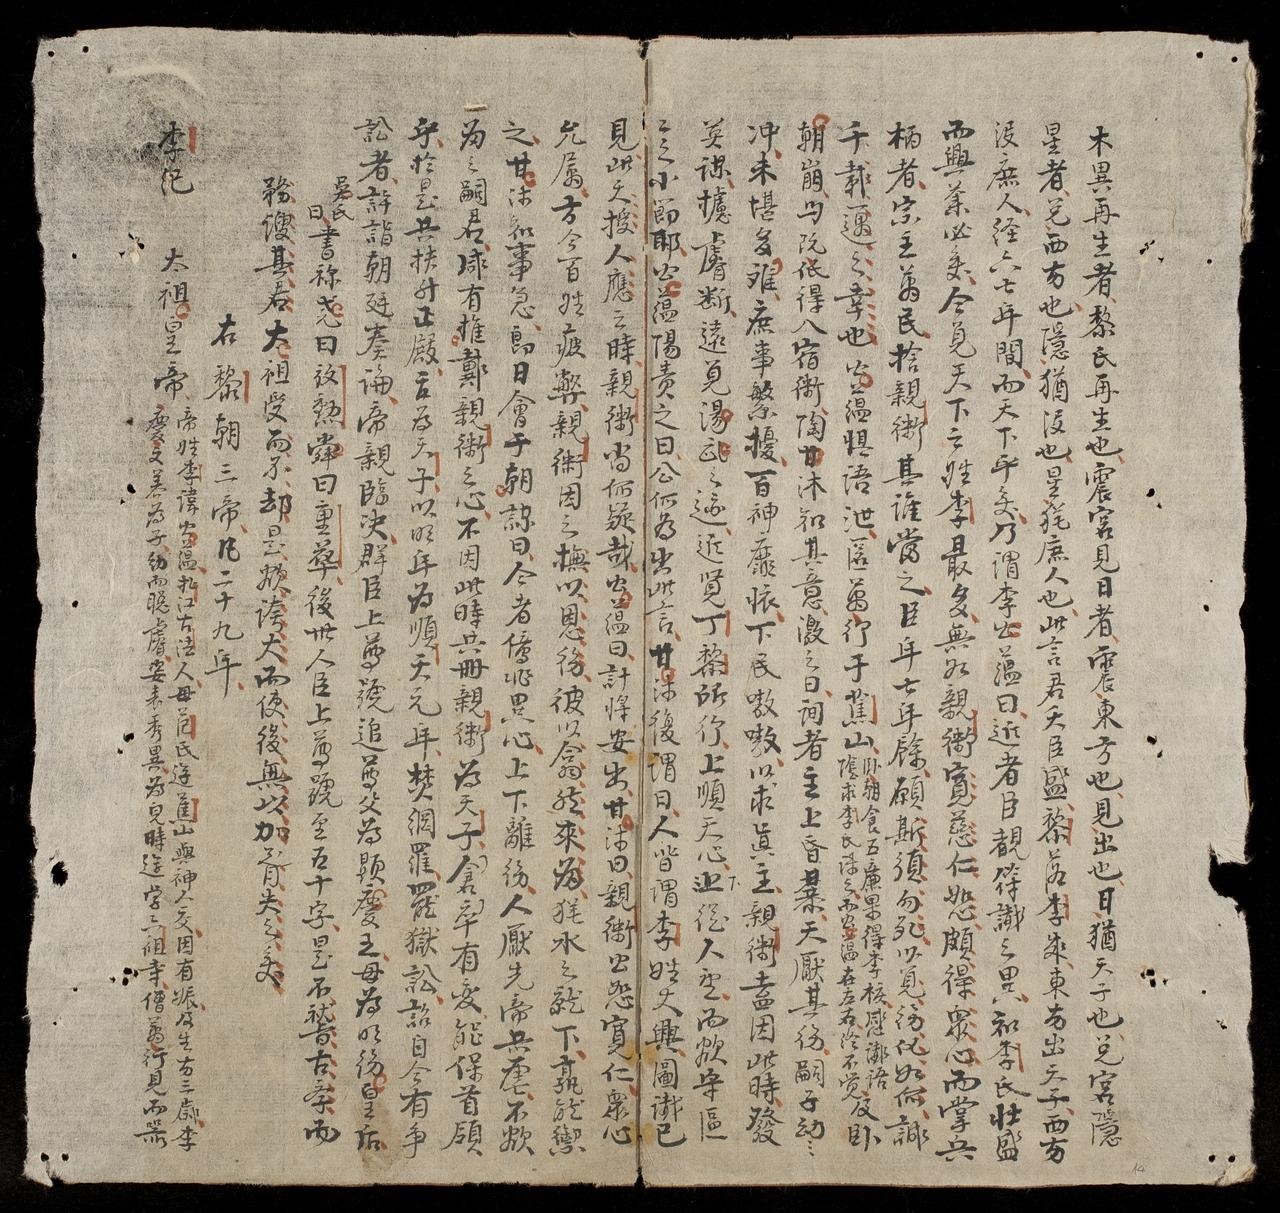 木異再生者黎氏再生也震宮見日者震東方也見出也日猶天子也兌宮隱
星者兌西方也隱猶沒也星猶庶人也此言君夭臣盛黎落李來東方出天子西方
沒庶人經六七年間而天下平矣乃謂李公蘊曰近者臣覩符讖之異知李氏壯盛
而興業必矣今見天下之姓李最多無如親衛寬慈仁恕頗得衆心而掌兵
柄者宗主萬民捨親衛其誰當之臣年七年餘願斯須勿死以見德化如何誠
千載一遇之幸也公蘊惧語泄匿萬行于蕉山臥朝食五廉果得李核感讖語
陰求李氏誅之而公蘊在左右終不覺及臥
朝崩与阮低得入宿衛陶甘沐知其意激之曰詢者主上昏暴天厭其德嗣子幼々
冲未堪多難庶事繁擾百神靡懷下民嗷嗷以求眞主親衛盍因此時發
英謀擄睿斷遠見湯武之迹近覽丁黎所行上順天心下從人望而欲守區
區之小節耶公蘊陽責之曰公何為出此言甘沐復謂曰人皆謂李姓大興圖讖已
見此天授人應之時親衛尚何疑哉公蘊曰計將安出甘沐曰親衛公恕寬仁衆心
允屬方今百姓疲弊親衛因之撫以恩德彼以翕然來為猶水之就下孰能禦
之甘沐知事急即日會于朝諫曰今者億兆異心上下離德人厭先帝兵虐不欲
為之嗣君咸有推戴親衛之心不因此時共冊親衛為天子倉卒有変能保首領
乎於是共扶升正殿立為天子以明年為順天元年焚綱羅罷獄訟詔自今有争
訟者許詣朝廷奏論帝親臨决群臣上尊號追尊父為顯慶王母為明德皇后
吳氏曰書称尭曰放勲舜曰重華後世人臣上尊號至五十字是不就昔古李而
務傻其君太祖受而不却是欲誇大而使後無以加肩失之矣
右黎朝三帝凡二十九年
李紀　太祖皇帝　帝姓李諱公蘊北江古法人母范氏遊蕉山與神人交因有娠及生方三歲李
慶文養為子幼而聰睿安表秀異為兒時遊学六祖寺僧萬行見而器